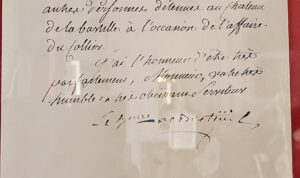 autres personnes détenues au Château
de la bastille à l'occasion de l'affaire
du Collier.
J'ai l'honneur d'être très
parfaitement, Monsieur, votre très
humble & très obéissant Serviteur